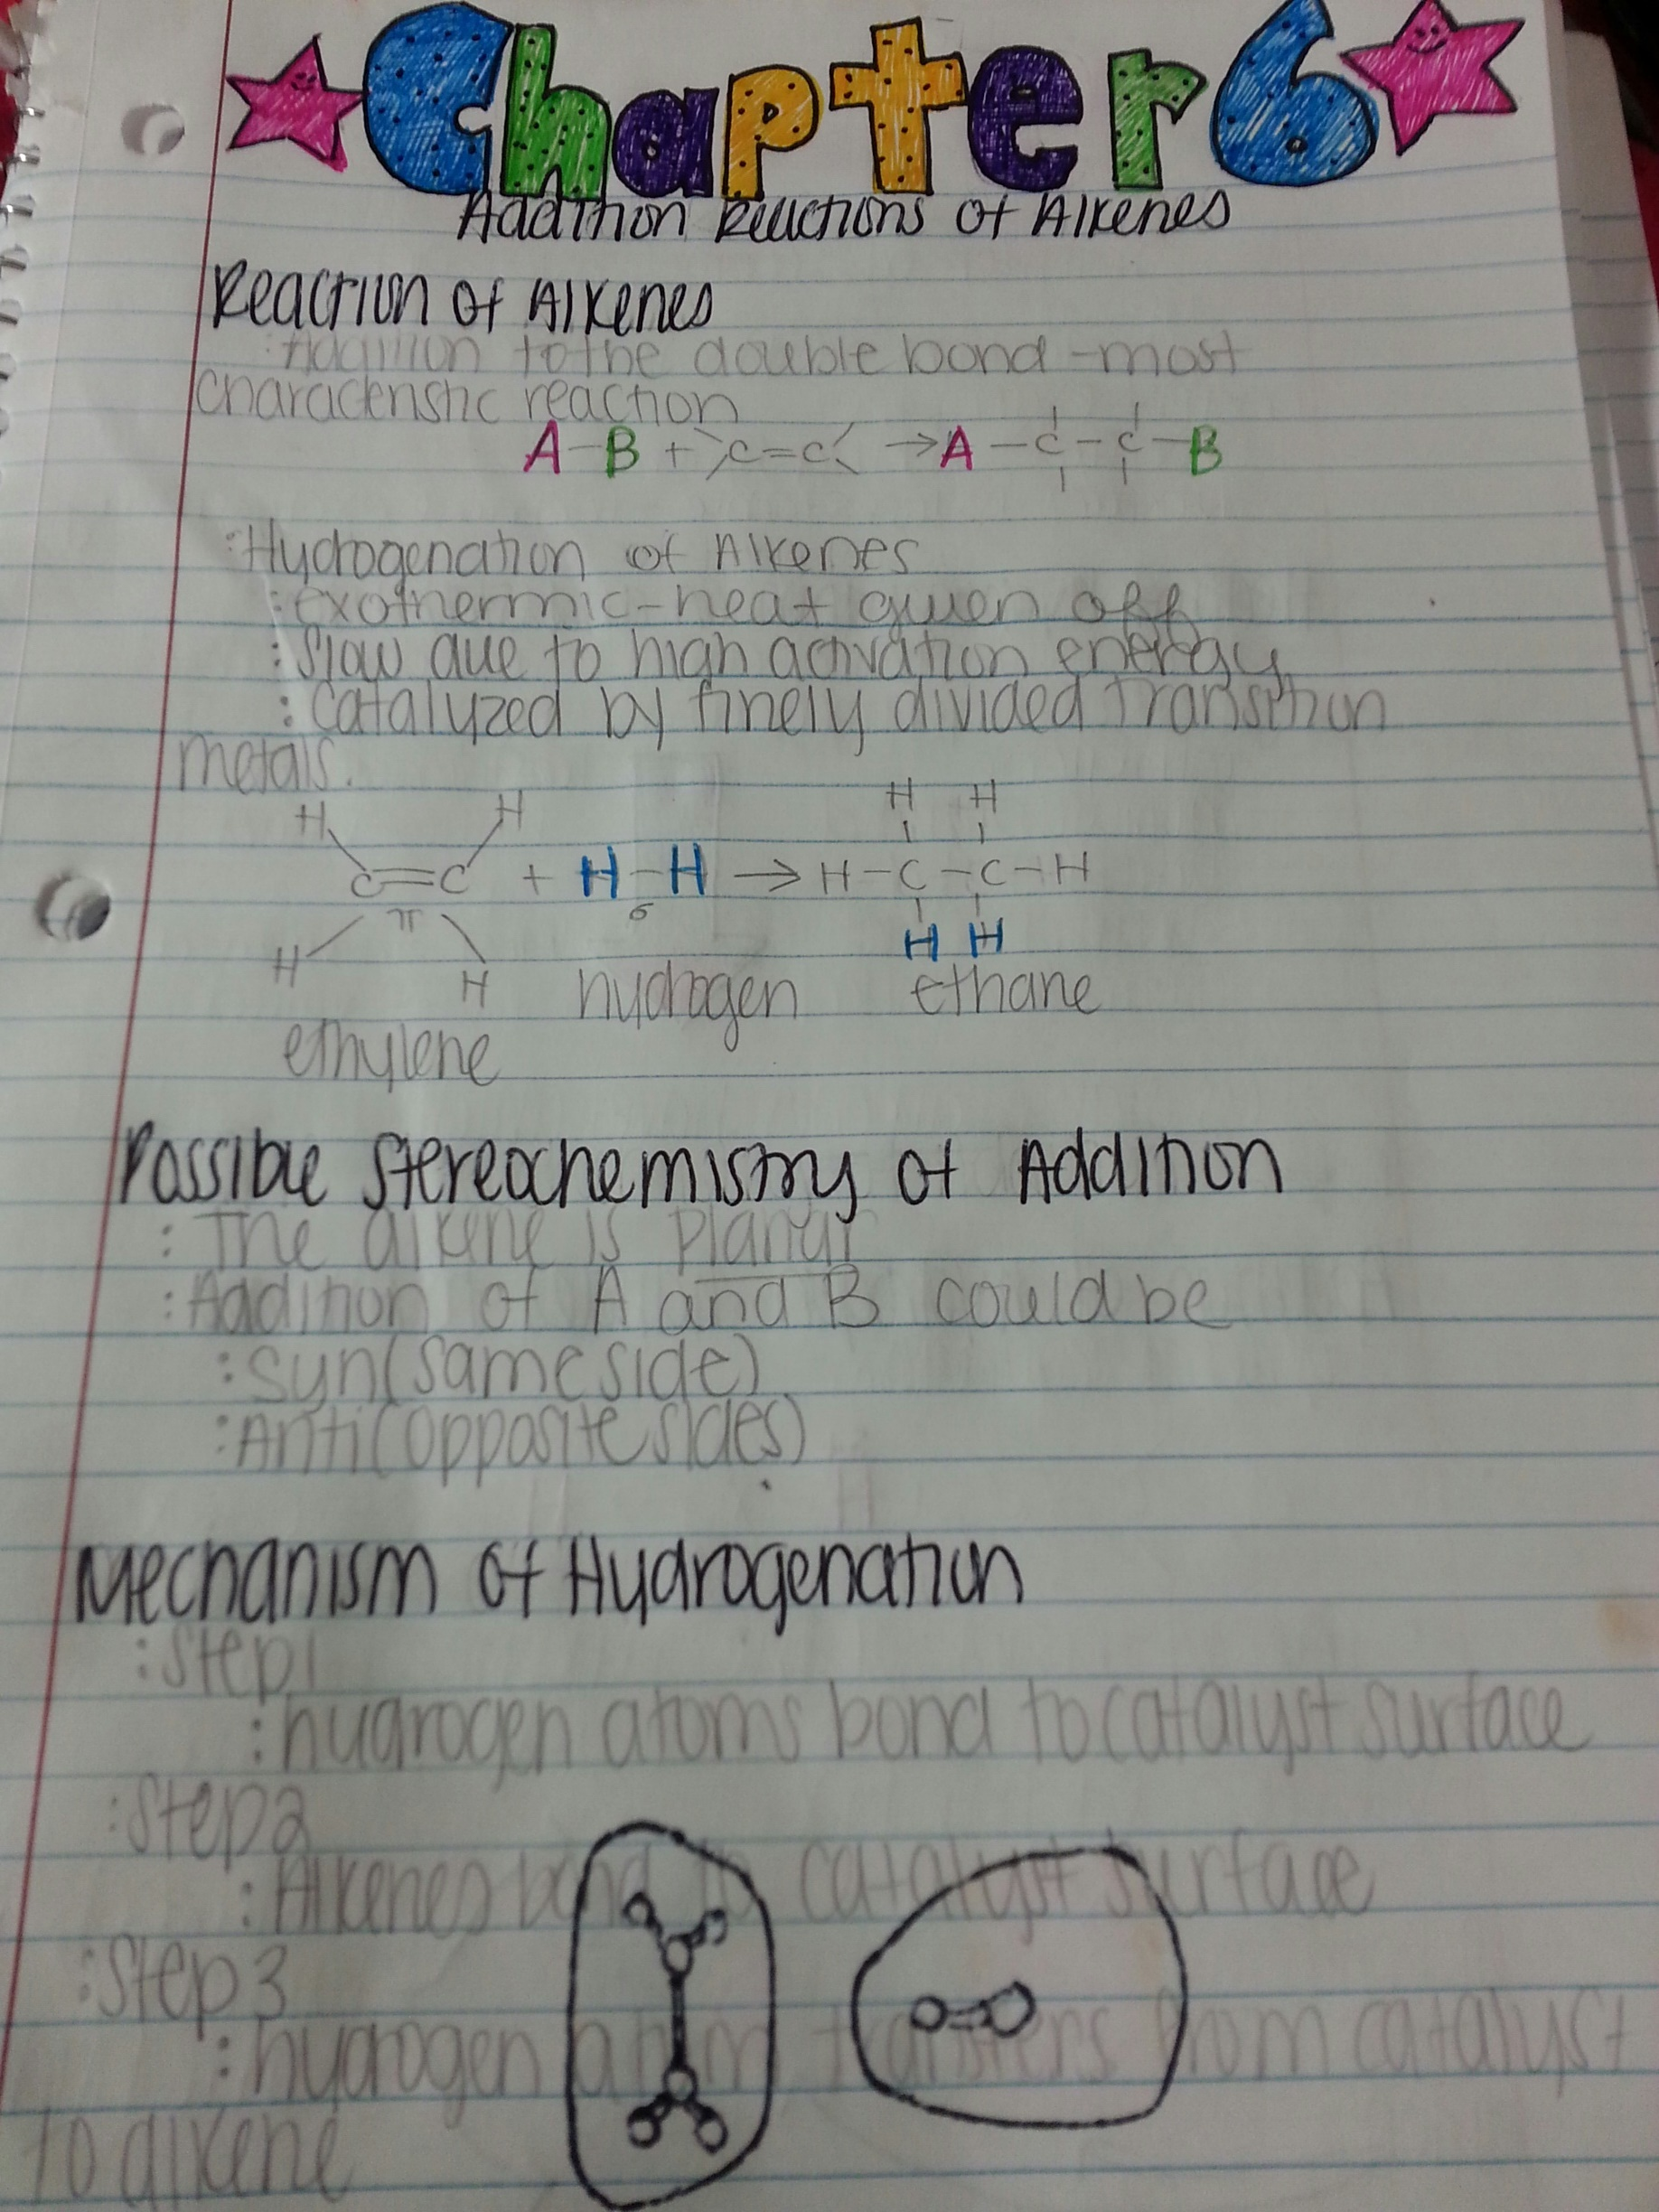 Chapter 6
Addition Reactions of Alkenes
Reaction of Alkenes
: Addition to the double bond - most
characteristic reaction
A-B + >C=C< → A-C-C-B
: Hydrogenation of Alkenes
: exothermic - heat given off
: Slow due to high activation energy
: catalyzed by finely divided transition
metals.
H H H H
C=C + H-H → H-C-C-H
π σ H H
H H hydrogen ethane
ethylene
Possible Stereochemistry of Addition
: The alkene is planar
: Addition of A and B could be
: syn (same side)
: Anti (opposite sides)
Mechanism of Hydrogenation
: Step 1
: hydrogen atoms bond to catalyst surface
: Step 2
: Alkenes bond to catalyst surface
: Step 3
: hydrogen atom transfers from catalyst
to alkene